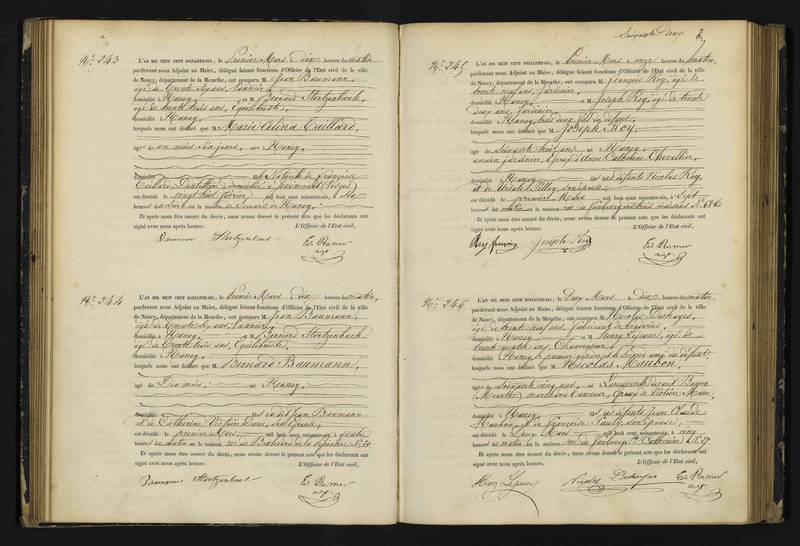 No. 243
L'AN MIL HUIT CENT SOIXANTE-SIX, le Premier Mars dix heures du matin,
pardevant nous Adjoint au Maire, délégué faisant fonctions d'Officier de l'Etat civil de la ville
de Nancy, département de la Meurthe, ont comparu M. Jean Baumann,
âgé de trente six ans, Vannier,
domicilié à Nancy, et M. Bernard Stertzenbach,
âgé de trente trois ans, Equilibriste,
domicilié à Nancy,
lesquels nous ont déclaré que M. Marie Célina Caillard,
âgée de un mois six jours, née à Nancy,
domiciliée est Naturelle de Françoise
Caillard, domiciliée à
est décédé le vingt huit février mil huit cent soixante-six, à six
heures en la maison de Secours de Nancy.
Et après nous être assuré du décès, nous avons dressé le présent acte que les déclarants ont
signé avec nous après lecture. L'Officier de l'Etat civil,
Baumann Stertzenbach Ed. Ramer
adjt
No. 244
L'AN MIL HUIT CENT SOIXANTE-SIX, le Premier Mars dix heures du matin,
pardevant nous Adjoint au Maire, délégué faisant fonctions d'Officier de l'Etat civil de la ville
de Nancy, département de la Meurthe, ont comparu M. Jean Baumann,
âgé de trente six ans, Vannier,
domicilié à Nancy, et M. Bernard Stertzenbach
âgé de trente trois ans, Equilibriste,
domicilié à Nancy,
lesquels nous ont déclaré que M. Bernard Baumann,
âgé de Dix mois, né à Nancy,
domicilié est né dit Jean Baumann
et de Catherine Victoire son épouse,
est décédé le premier Mars, mil huit cent soixante-six, à quatre
heures du matin en la maison rue du
Et après nous être assuré du décès, nous avons dressé le présent acte que les déclarants ont
signé avec nous après lecture. L'Officier de l'Etat civil,
Baumann Stertzenbach Ed. Ramer
adjt
Soixante deux
No. 245
L'AN MIL HUIT CENT SOIXANTE-SIX, le Premier Mars onze heures du matin,
pardevant nous Adjoint au Maire, délégué faisant fonctions d'Officier de l'Etat civil de la ville
de Nancy, département de la Meurthe, ont comparu M. François Roy, âgé de
trente neuf ans, Jardinier,
domicilié à Nancy, et M. Joseph Roy, âgé de trente
deux ans, Jardinier,
domicilié à Nancy, tous deux fils du défunt,
lesquels nous ont déclaré que M. Joseph Roy,
âgé de soixante huit ans, né à Nancy,
ancien jardinier, époux d'Anne Catherine Chevallier,
domicilié à Nancy, est né défunts Nicolas Roy
et de son épouse
est décédé le premier Mars mil huit cent soixante-six, à sept
heures du matin en la maison rue du faubourg des trois maisons No.
Et après nous être assuré du décès, nous avons dressé le présent acte que les déclarants ont
signé avec nous après lecture. L'Officier de l'Etat civil,
Roy françois Joseph Roy Ed. Ramer
adjt
No. 246
L'AN MIL HUIT CENT SOIXANTE-SIX, le Deux Mars dix heures du matin,
pardevant nous Adjoint au Maire, délégué faisant fonctions d'Officier de l'Etat civil de la ville
de Nancy, département de la Meurthe, ont comparu M. Nicolas Deshayes,
âgé de trente neuf ans, fabricant de broderies,
domicilié à Nancy, et M. Henry Lejeune, âgé de
trente quatre ans,
domicilié à Nancy, le premier gendre et le second ami du défunt,
lesquels nous ont déclaré que M. Nicolas Maubon,
âgé de soixante cinq ans, né à
(Meurthe) marchand Tanneur, époux de Victoire
domicilié à Nancy, est né défunts Jean Claude
Maubon et de Françoise son épouse,
est décédé le Deux Mars mil huit cent soixante-six, à cinq
heures du matin en la maison rue du faubourg Ste Catherine No. 27.
Et après nous être assuré du décès, nous avons dressé le présent acte que les déclarants ont
signé avec nous après lecture. L'Officier de l'Etat civil,
Henry Lejeune Nicolas Deshayes Ed. Ramer
adjt